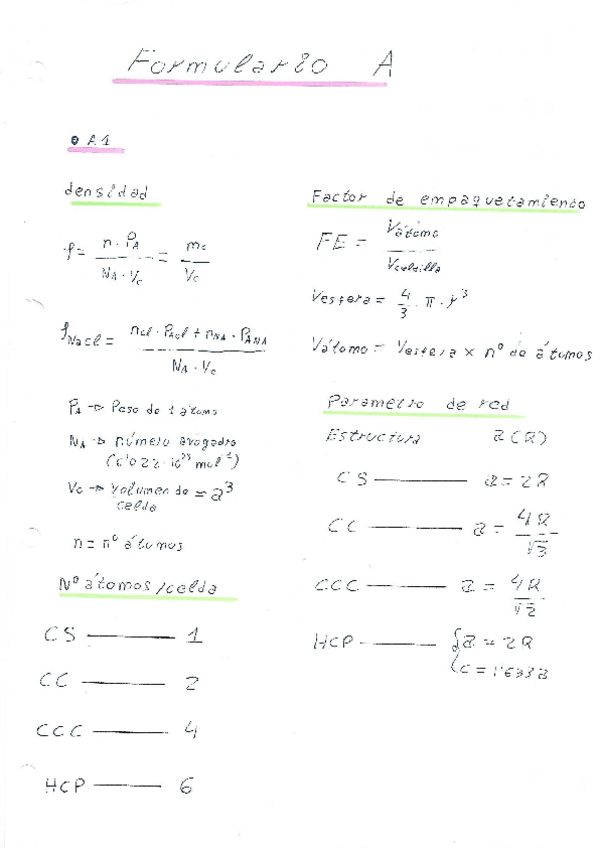 Formulario A
• A1
densidad
ρ = n · PA / NA · Vc = mc / Vc
ρNaCl = nCl · PACl + nNA · PANA / NA · Vc
PA → Peso de 1 átomo
NA → número avogadro
(6'022 · 10²³ mol⁻¹)
Vc → volumen de = a³
celda
n = nº átomos
Nº átomos/celda
CS — 1
CC — 2
CCC — 4
HCP — 6
Factor de empaquetamiento
FE = Vátomo / Vceldilla
Vesfera = 4/3 · π · r³
Vátomo = Vesfera x nº de átomos
Parametro de red
Estructura a(R)
CS — a = 2R
CC — a = 4R/√3
CCC — a = 4R/√2
HCP — { a = 2R
c = 1'633a